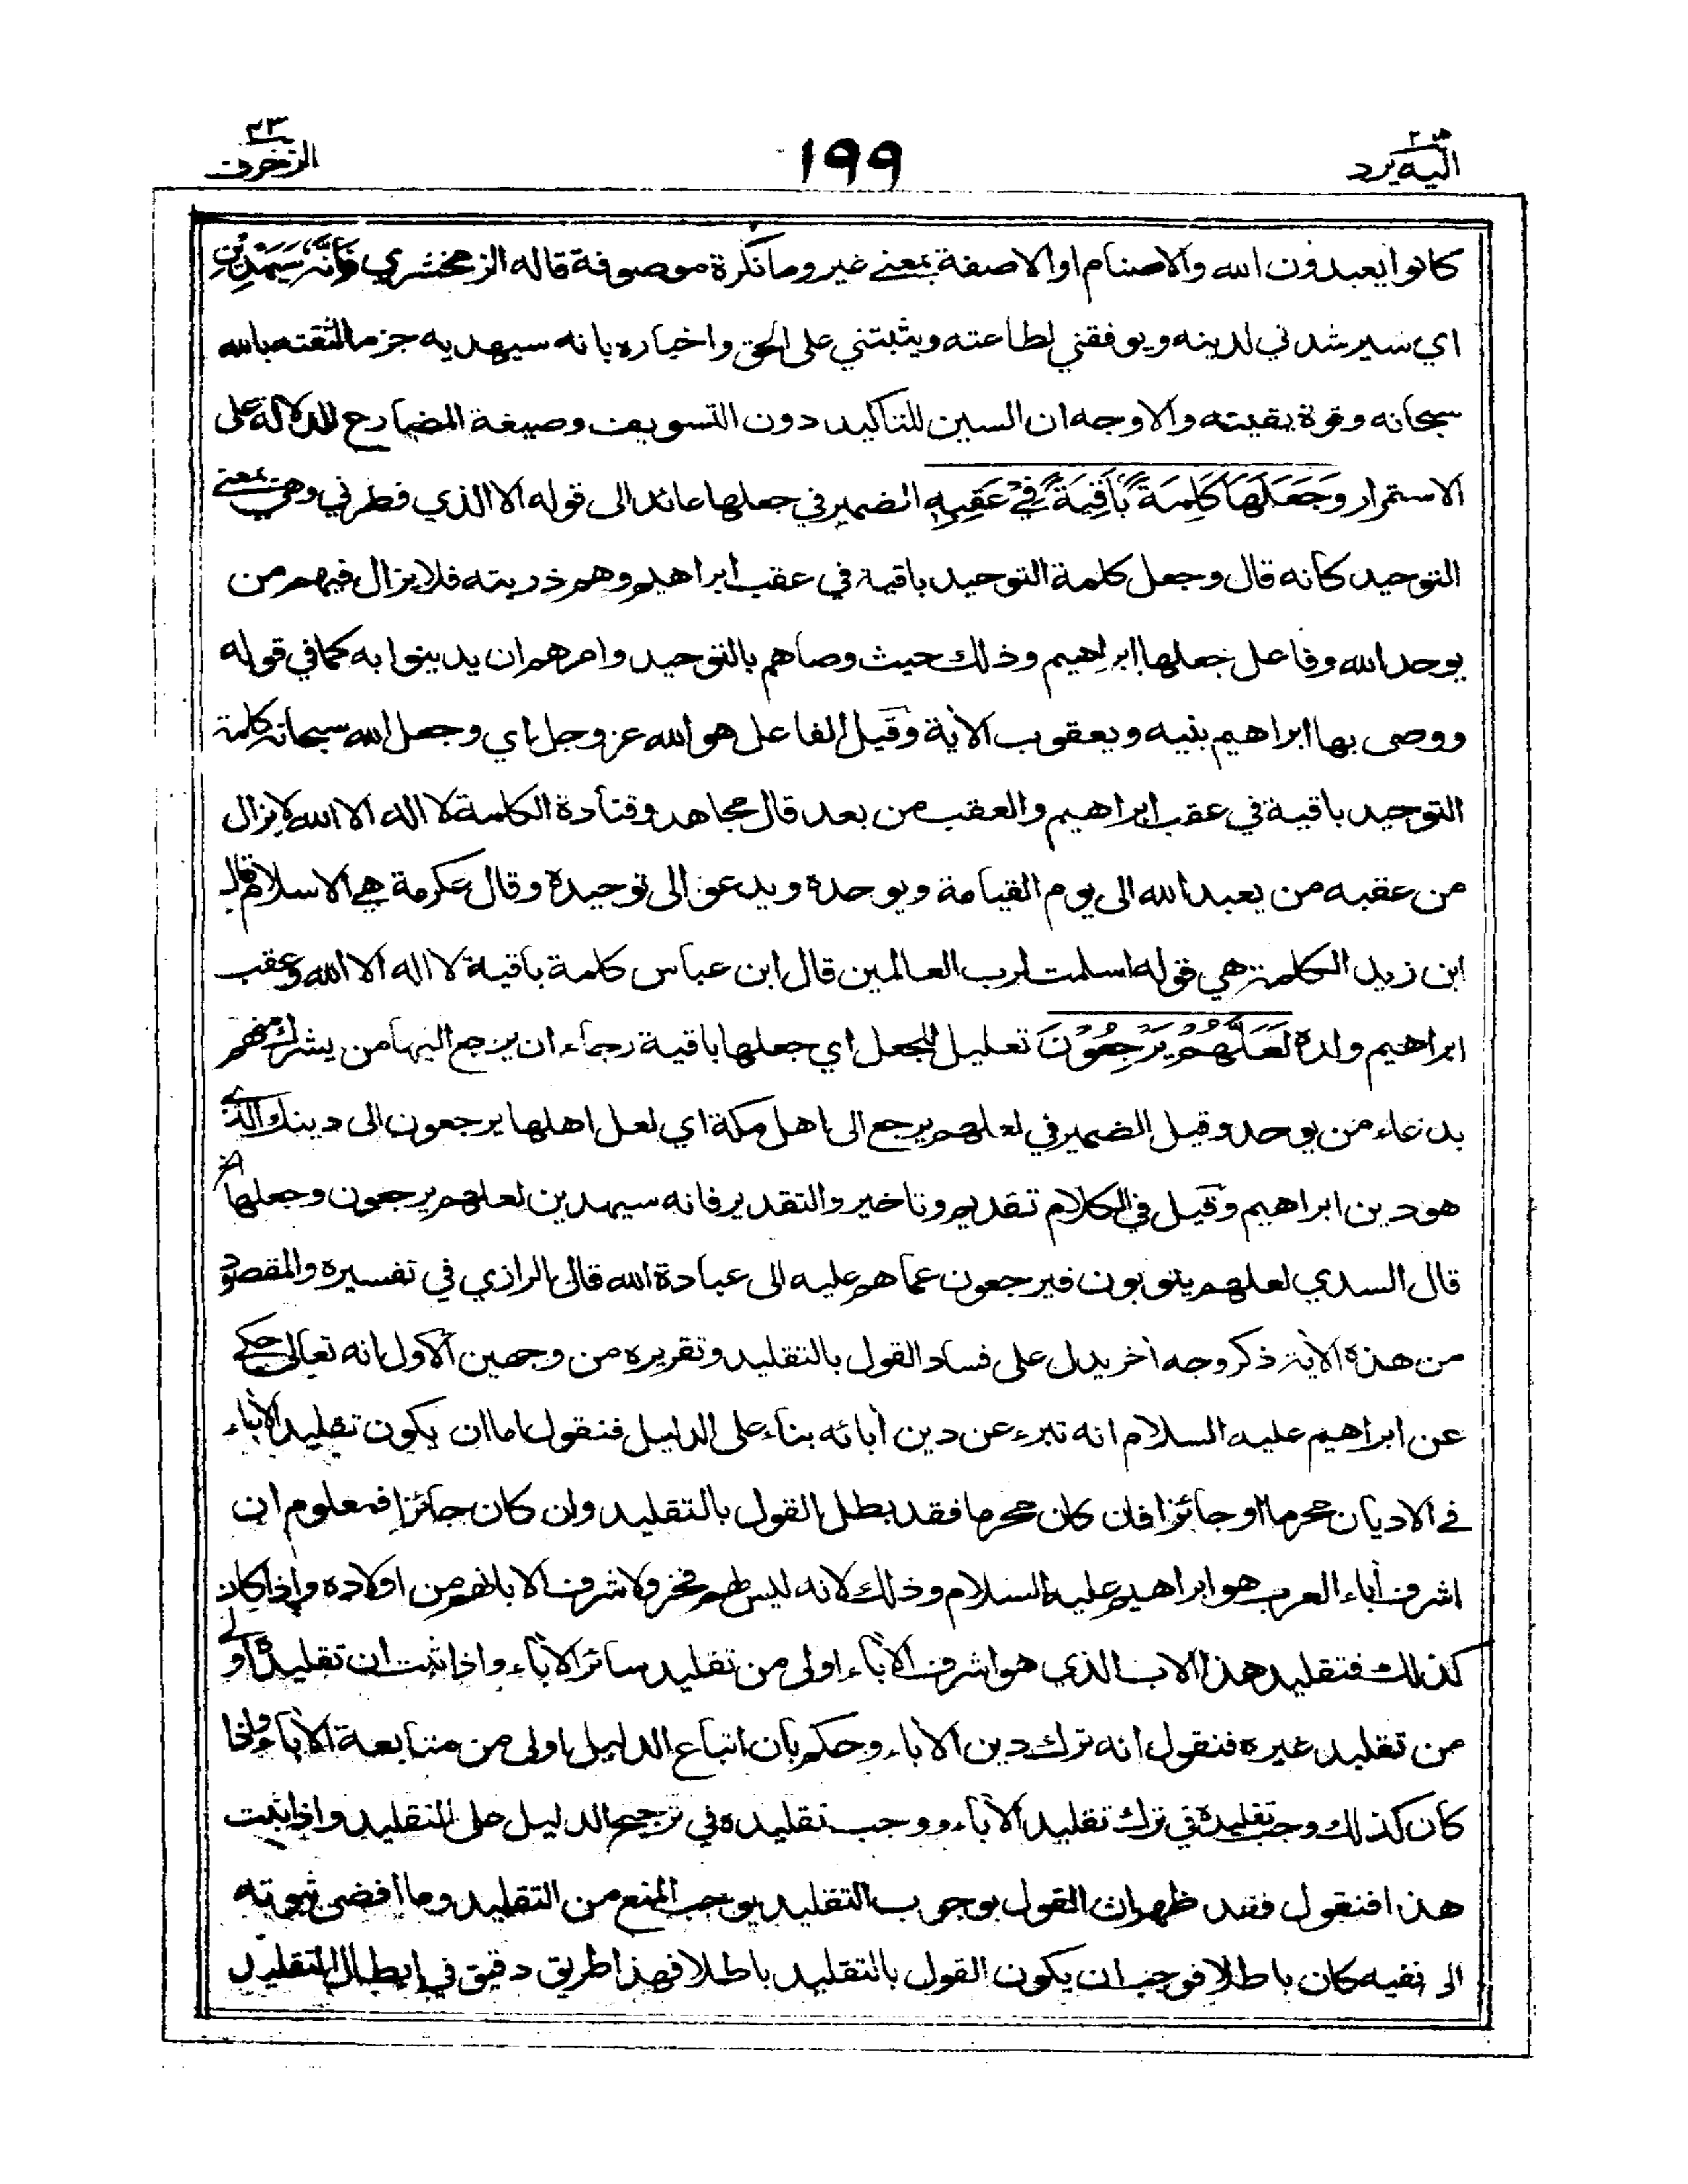 اليه يرد ٢٥
١٩٩
الزخرف ٤٣
كانوا يعبدون الله والاصنام او الا صفة بمعنى غير وما نكرة موصوفة قاله الزمخشري فَاِنَّهٗ سَيَهْدِيْنِ
اي سيرشدني لدينه ويوفقني لطاعته ويثبتني على الحق واخباره بانه سيهديه جزما لثقته بالله
سبحانه وقوة يقينه والاوجه ان السين للتاكيد دون التسويف وصيغة المضارع للدلالة على
الاستمرار وَجَعَلَهَا كَلِمَةً بَاقِيَةً فِيْ عَقِبِهٖ الضمير في جعلها عائد الى قوله الا الذي فطرني وهي بمعنى
التوحيد كانه قال وجعل كلمة التوحيد باقية في عقب ابراهيم وهم ذريته فلا يزال فيهم من
يوحد الله وفاعل جعلها ابراهيم وذلك حيث وصاهم بالتوحيد وامرهم ان يدينوا به كما في قوله
ووصى بها ابراهيم بنيه ويعقوب الأية وقيل الفاعل هو الله عز وجل اي وجعل الله سبحانه كلمة
التوحيد باقية في عقب ابراهيم والعقب من بعد قال مجاهد وقتادة الكلمة لا اله الا الله لا يزال
من عقبه من يعبد الله الى يوم القيامة ويوحده ويدعو الى توحيده وقال عكرمة هي الاسلام قال
ابن زيد الكلمة هي قوله اسلمت لرب العالمين قال ابن عباس كلمة باقية لا اله الا الله وعقب
ابراهيم ولده لَعَلَّهُمْ يَرْجِعُوْنَ تعليل للجعل اي جعلها باقية رجاء ان يرجع اليها من يشرك منهم
بدعاء من يوحد وقيل الضمير في لعلهم يرجع الى اهل مكة اي لعل اهلها يرجعون الى دينك الذي
هو دين ابراهيم وقيل في الكلام تقديم وتاخير والتقدير فانه سيهدين لعلهم يرجعون وجعلها الخ
قال السدي لعلهم يتوبون فيرجعون عما هم عليه الى عبادة الله قال الرازي في تفسيره والمقصود
من هذه الأية ذكر وجه أخر يدل على فساد القول بالتقليد وتقريره من وجهين الأول انه تعالى حكى
عن ابراهيم عليه السلام انه تبرء عن دين أبائه بناء على الدليل فنقول اما ان يكون تقليد الأباء
في الاديان محرما او جائزا فان كان محرما فقد بطل القول بالتقليد وان كان جائزا فمعلوم ان
اشرف أباء العرب هو ابراهيم عليه السلام وذلك لانه ليس لهم فخر ولا شرف الا بانهم من اولاده واذا كان
كذلك فتقليد هذا الاب الذي هو اشرف الأباء اولى من تقليد سائر الأباء واذا ثبت ان تقليده اولى
من تقليد غيره فنقول انه ترك دين الأباء وحكم بان اتباع الدليل اولى من متابعة الأباء واذا
كان كذلك وجب تقليده في ترك تقليد الأباء ووجب تقليده في ترجيح الدليل على التقليد واذا ثبت
هذا فنقول فقد ظهر ان القول بوجوب التقليد يوجب المنع من التقليد وما افضى ثبوته
الى نفيه كان باطلا فوجب ان يكون القول بالتقليد باطلا فهذا طريق دقيق في ابطال التقليد